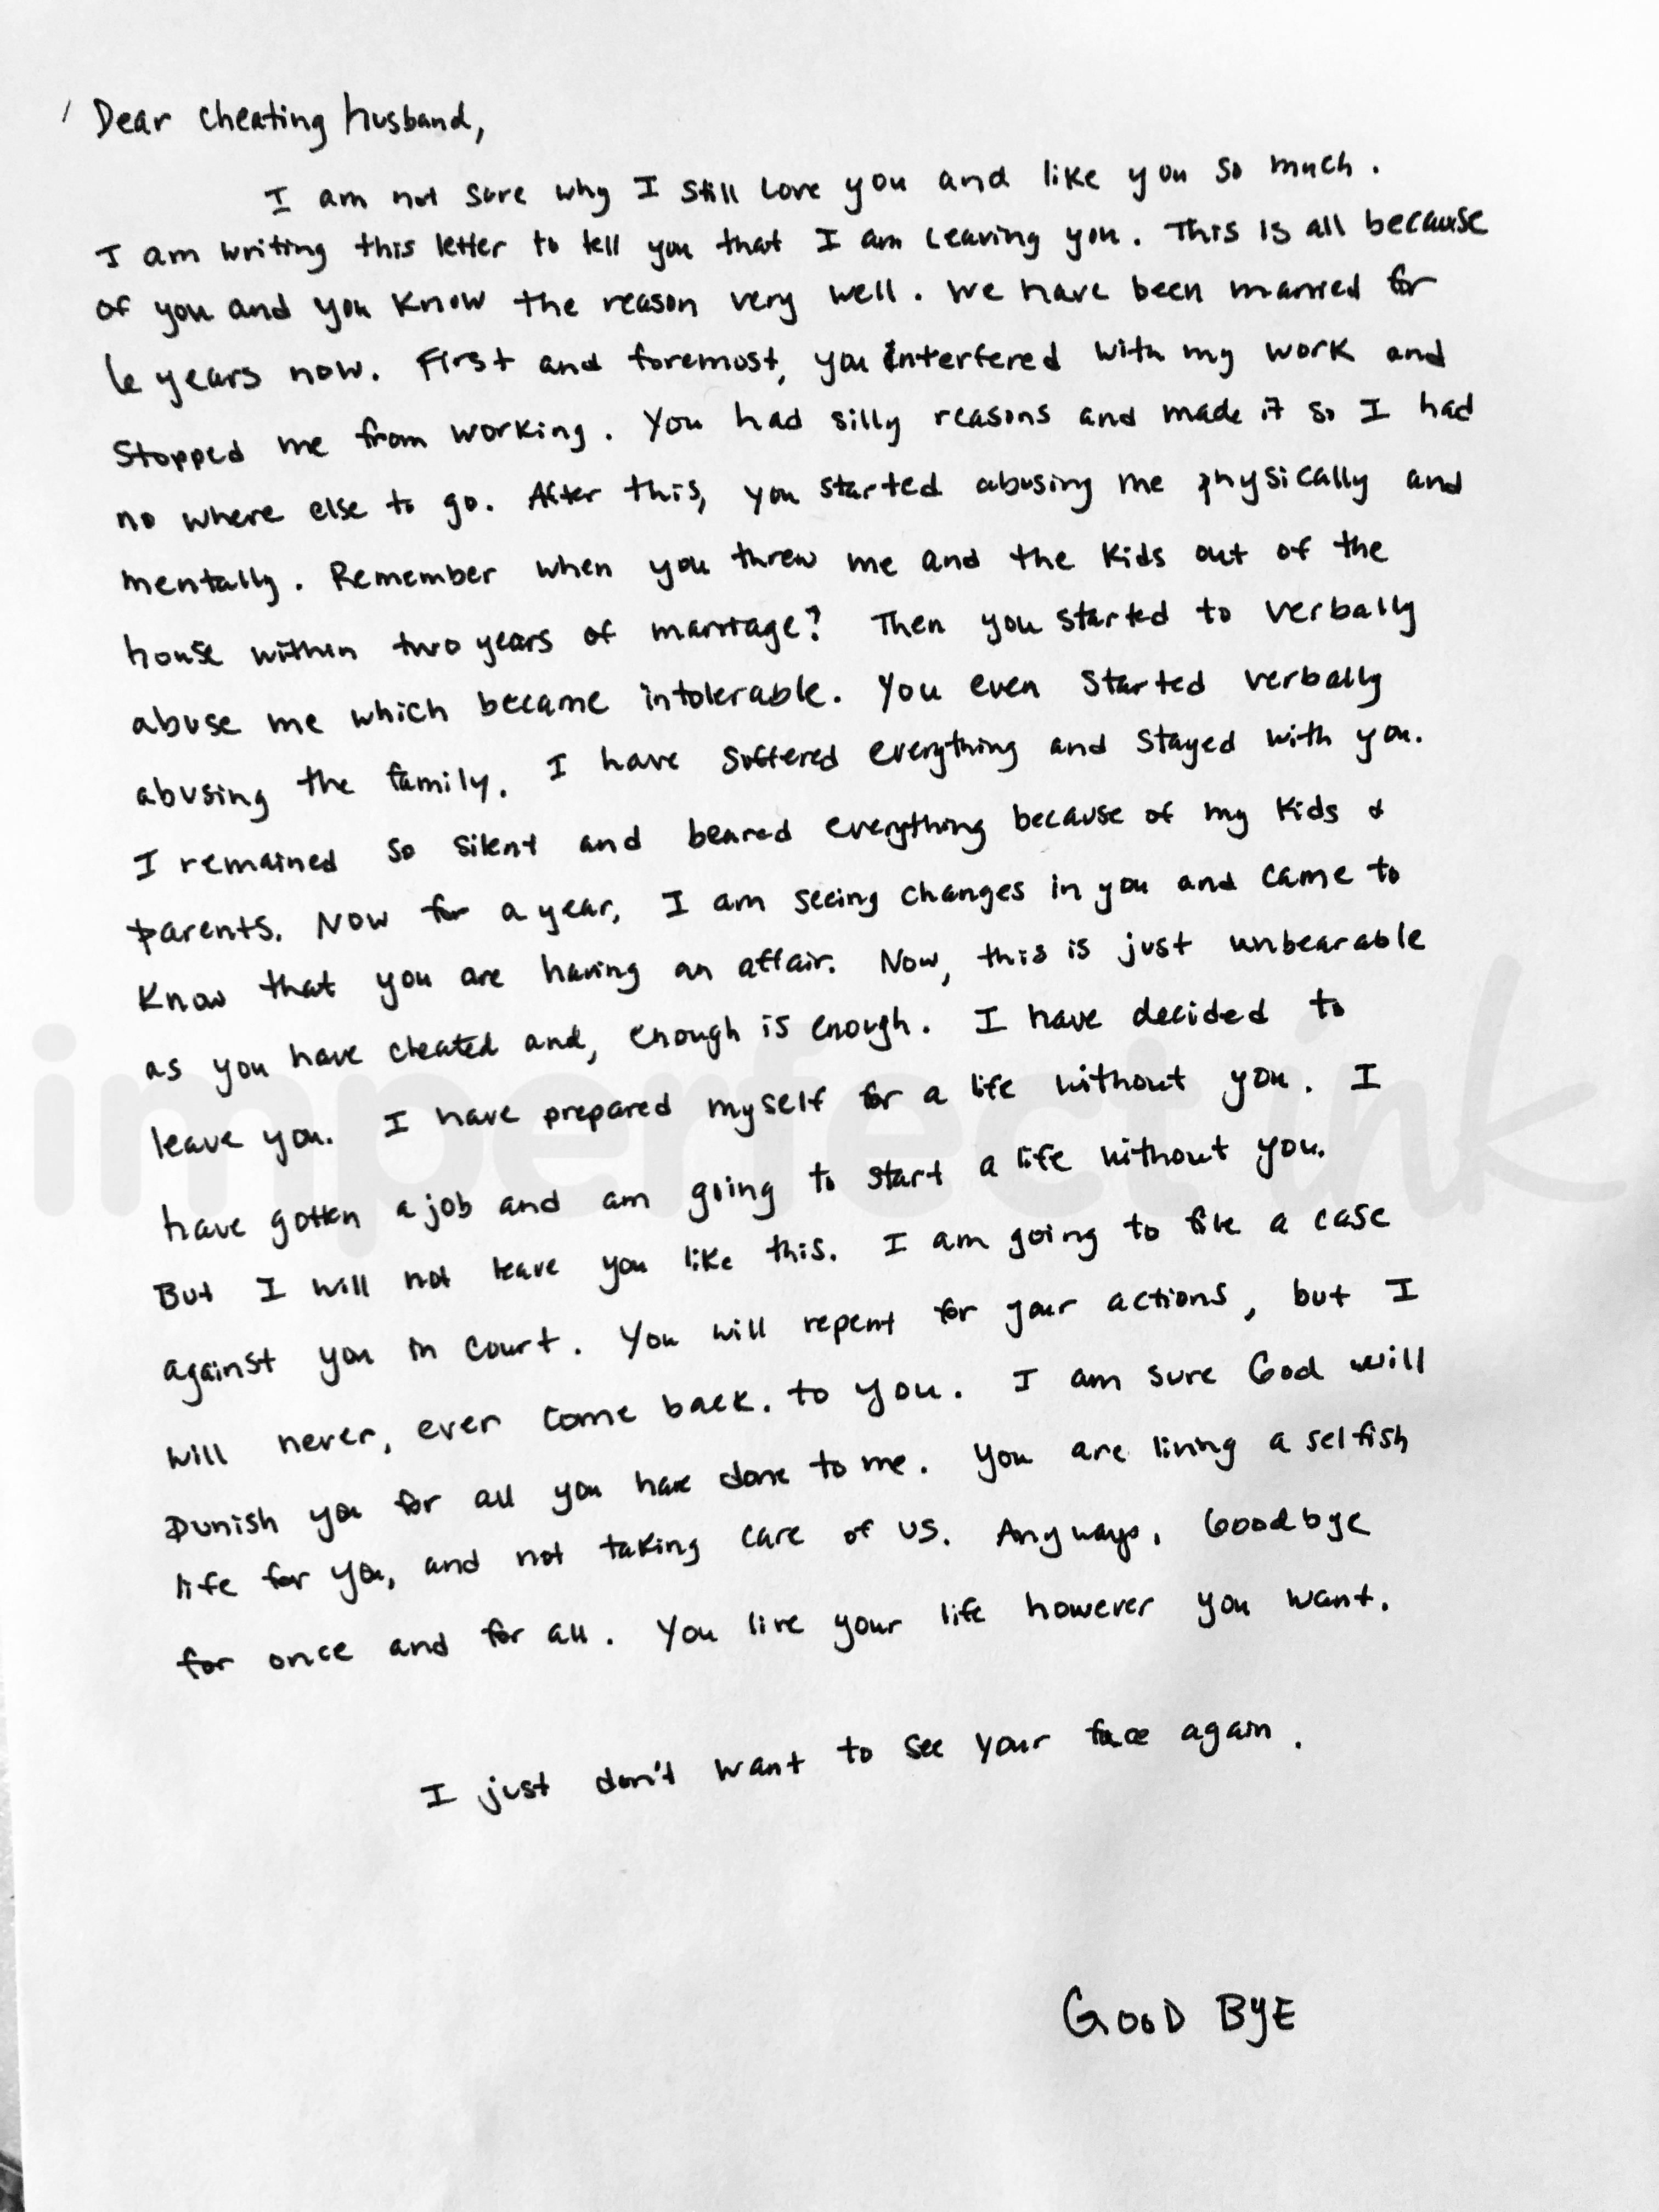 Dear cheating husband,
I am not sure why I still love you and like you so much.
I am writing this letter to tell you that I am leaving you. This is all because
of you and you know the reason very well. We have been married for
6 years now. First and foremost, you interfered with my work and
stopped me from working. You had silly reasons and made it so I had
no where else to go. After this, you started abusing me physically and
mentally. Remember when you threw me and the kids out of the
house within two years of marriage? Then you started to verbally
abuse me which became intolerable. You even started verbally
abusing the family. I have suffered everything and stayed with you.
I remained so silent and beared everything because of my kids &
parents. Now for a year, I am seeing changes in you and came to
know that you are having an affair. Now, this is just unbearable
as you have cheated and, enough is enough. I have decided to
leave you. I have prepared myself for a life without you. I
have gotten a job and am going to start a life without you.
But I will not leave you like this. I am going to file a case
against you in court. You will repent for your actions, but I
will never, ever come back. to you. I am sure God will
punish you for all you have done to me. You are living a selfish
life for you, and not taking care of us. Anyways, Goodbye
for once and for all. You live your life however you want.
I just don't want to see your face again.
GOOD BYE
imperfect ink